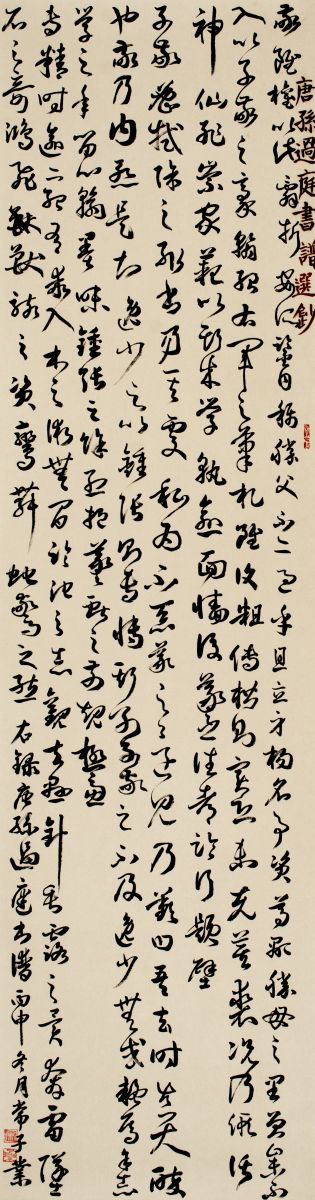 唐孫過庭書譜選鈔
敬雖權以此辭折安所鑒自稱勝父不亦過乎且立身揚名事資尊顯勝母之里曾參不
入以子敬之豪翰紹右軍之筆札雖復粗傳楷則實恐未克箕裘況乃假託
神仙恥崇家範以斯成學孰愈面牆後羲之往都臨行題壁
子敬密拭除之輒書易其處私為不惡羲之還見乃嘆曰吾去時真大醉
也敬乃內慚是知逸少之比鍾張則專博斯別子敬之不及逸少無或疑焉余志
學之年留心翰墨味鍾張之餘烈挹羲獻之前規極慮
專精時逾二紀有乖入木之術無間臨池之志觀夫懸針垂露之異奔雷墜
石之奇鴻飛獸駭之資鸞舞蛇驚之態右錄唐孫過庭書譜丙申冬月常子業